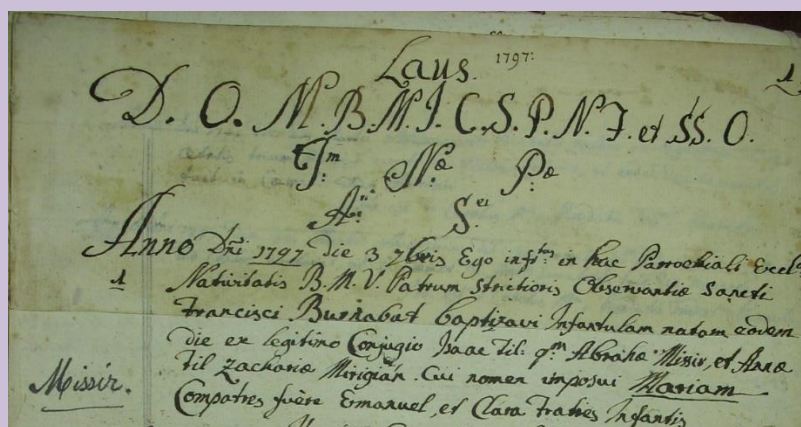 Laus. 1797:
1
D. O. M. B. M. I. C. S. P. N. F. et SS. O.
I:m N:æ P:æ
A: S:ti
Anno Dñi 1797 die 3 7bris Ego infr:tus in hac Parrochiali Eccl:
1 Nativitatis B. M. V. Patrum strictioris Observantiæ Sancti
Francisci Burnabat baptizavi Infantulam natam eodem
die ex legitimo Conjugio Isaac fil: q:m Abrahæ Missir, et Annæ
fil Zachariæ Mirigian. Cui nomen imposui Mariam
Missir.
Compatres fuêre Emanuel, et Clara Fratres Infantis